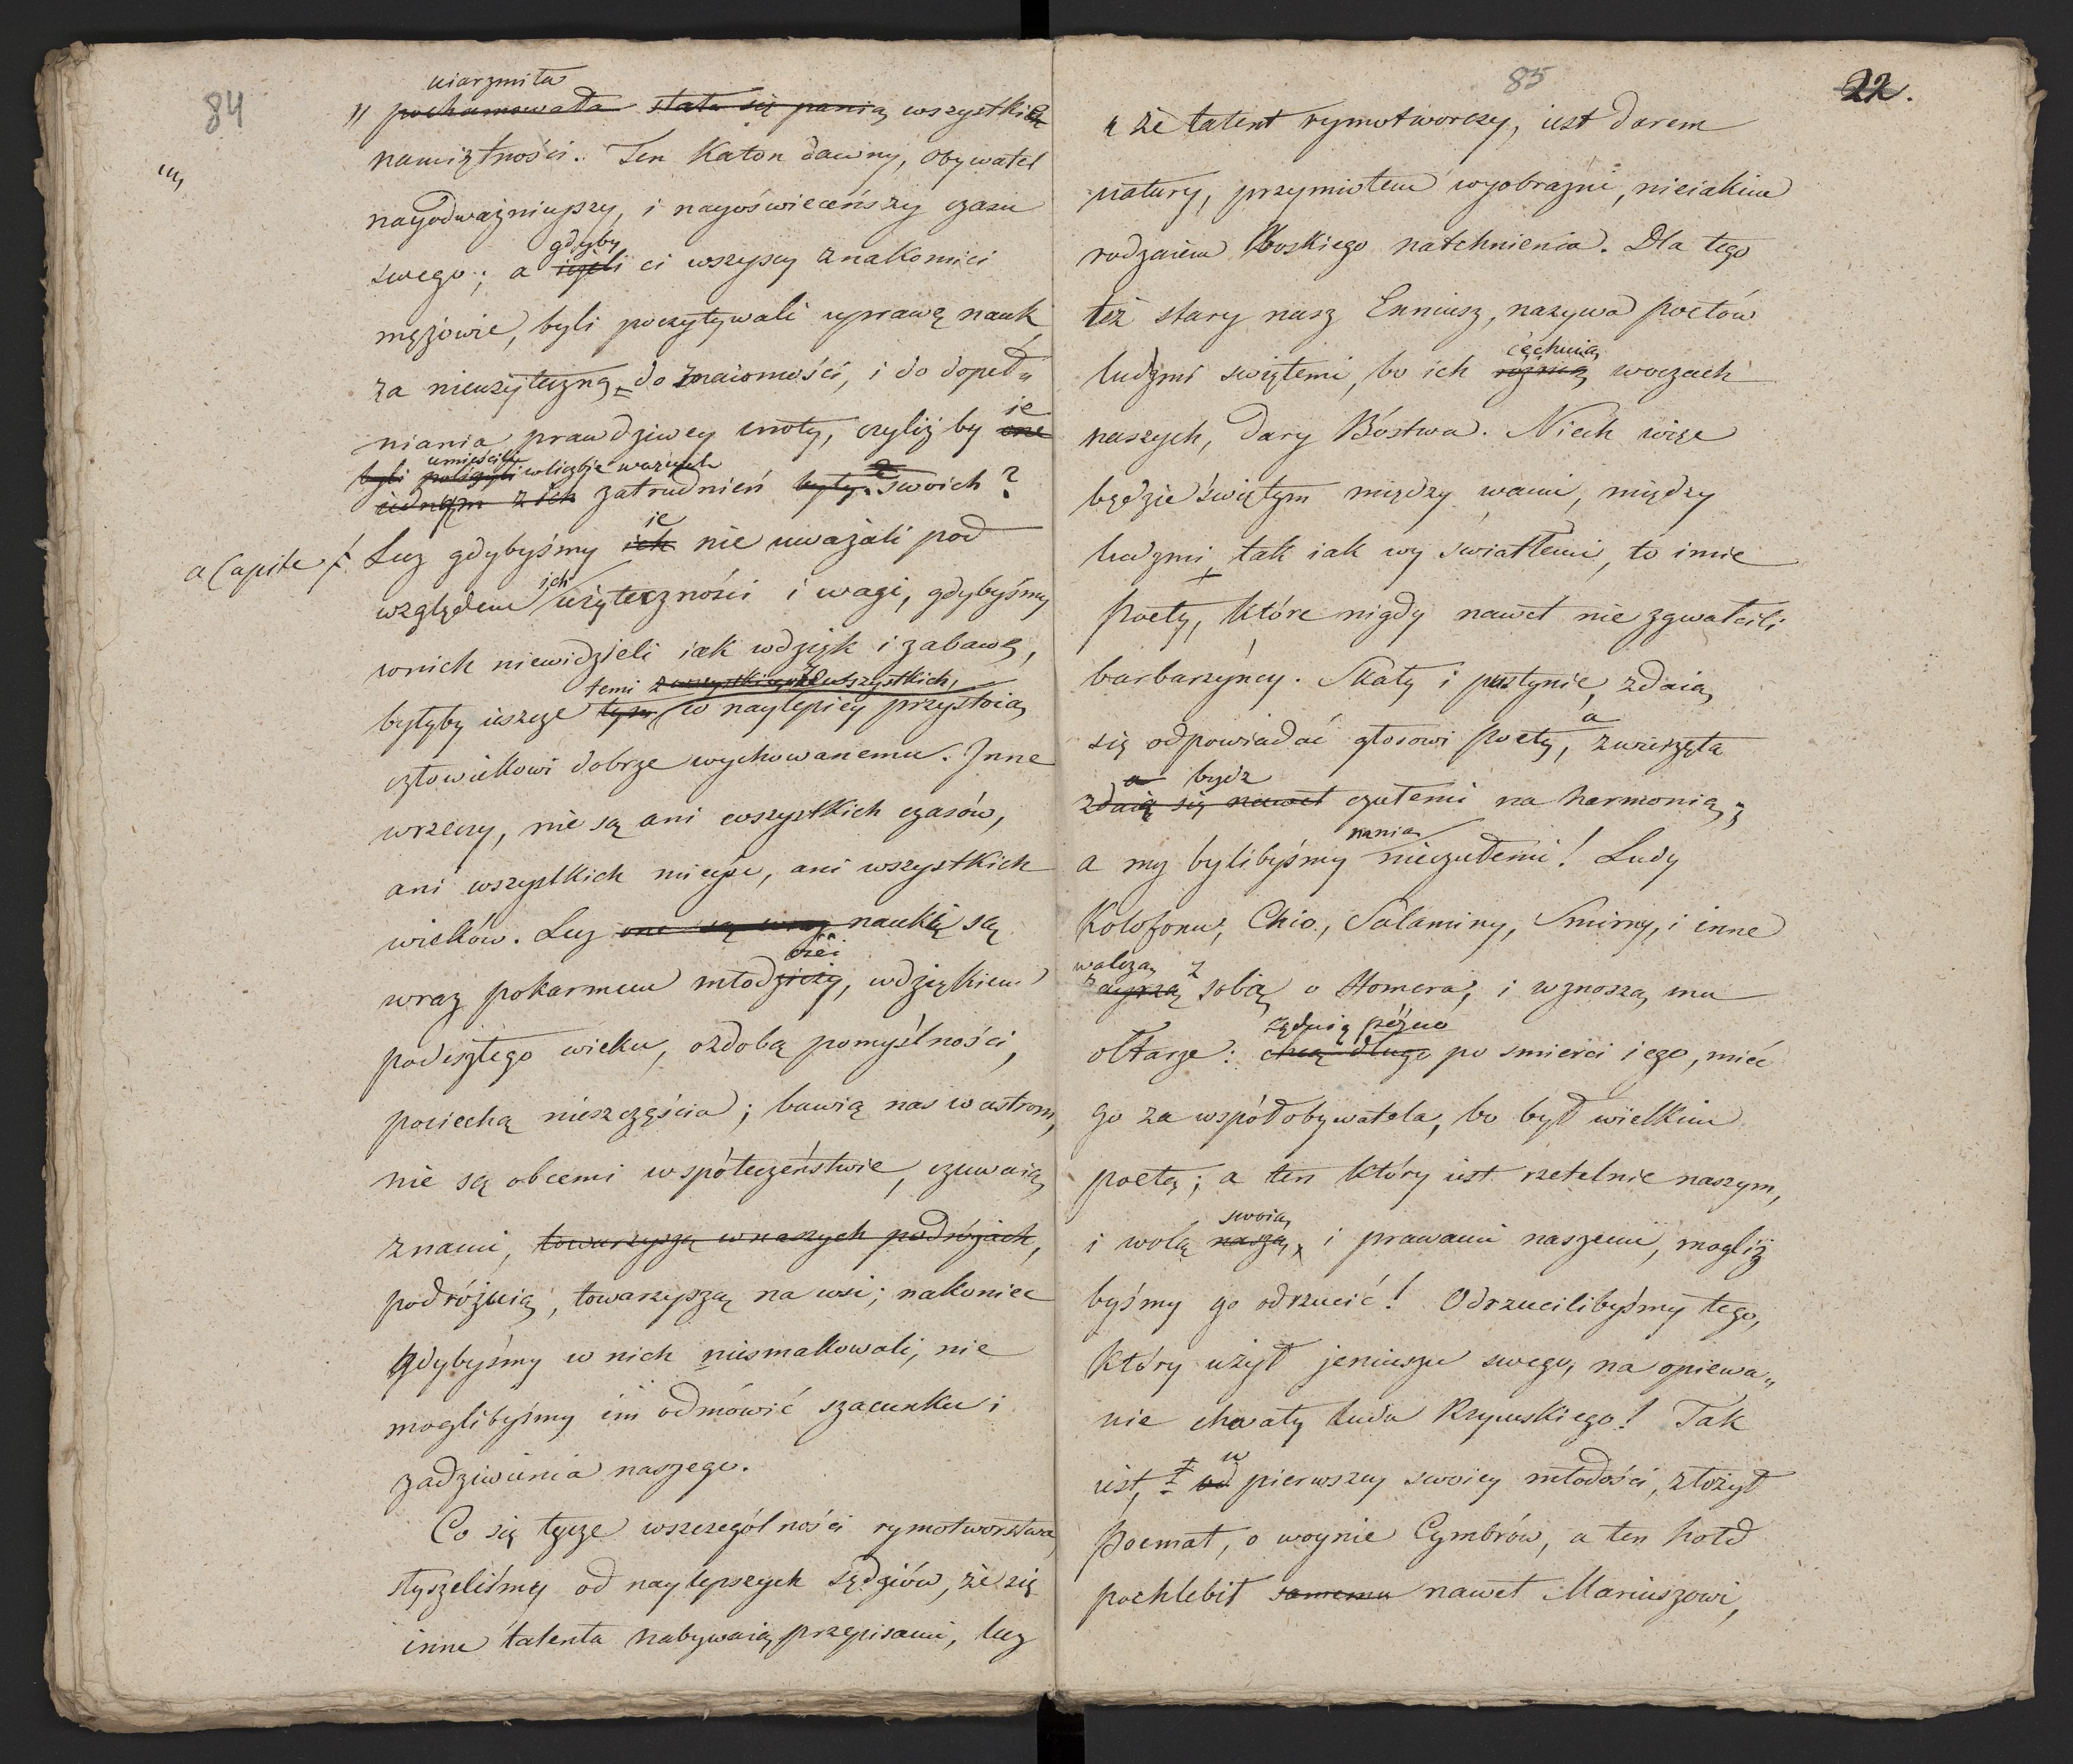 84
uiarzmiła
" pochamowała stała się panią wszystkich
namiętności. Ten Katon dawny, obywatel
nayodważnieyszy, i nayoświeceńszy czasu
gdyby
swego; a ieżeli ci wszyscy znakomici
mężowie, byli poczytywali uprawę nauk
za nieużyteczną do znaiomości, i do dopeł„
niania prawdziwey cnoty, czyliż by one ie
umieścili
byli policzyli w liczbie ważnych
iednym z ich zatrudnień były swoich?
a Capite Lecz gdybyśmy ich ie nie uważali pod
względem ich użyteczności i wagi, gdybyśmy
wnich niewidzieli iak wdzięk i zabawę,
temi z wszystkich
byłyby ieszcze tym co naylepiey przystoią
człowiekowi dobrze wychowanemu. Inne
wrzeczy, nie są ani wszystkich czasów,
ani wszystkich mieysc, ani wszystkich
wieków. Lecz one są wraz nauki są
dzi
wraz pokarmem młodzieży, wdziękiem
podeszłego wieku, ozdobą pomyślności,
pociechą nieszczęścia; bawią nas w ustroni,
nie są obcemi w społeczeństwie, czuwaią
znami, towarzyszą w naszych podróżach,
podróżuią, towarzyszą na wsi; nakoniec
gdybyśmy w nich niesmakowali, nie
moglibyśmy im odmówić szacunku i
zadziwienia naszego.
Co się tycze wszczególności rymotworstwa
słyszeliśmy od naylepszych sędziów, że się
inne talenta nabywaią przepisami, lecz
85
22.
że talent rymotworczy, iest darem
natury, przymiotem wyobraźni, nieiakim
rodzaiem Boskiego natchnienia. Dla tego
też stary nasz Enniusz, nazywa poetów
cęchuią
ludźmi swiętemi, bo ich różnią woczach
naszych, dary Bóstwa. Niech więc
będzie świętym między wami, między
ludźmi, tak iak wy światłemi, to imie
poety, które nigdy nawet nie zgwałcili
barbarzyńcy. Skały i pustynie, zdaią
się odpowiadać głosowi poety, a zwierzęta
a bydz
zdaią się nawet czułemi na harmonią;
nania
a my bylibyśmy nieczułemi! Ludy
Kolofonu, Chio, Salaminy, Smirny, i inne
walczą z
sobą o Homera, i wznoszą mu
żądaią późno
ołtarze: chcą długo po smierci iego, mieć
go za współobywatela, bo był wielkim
poetą; a ten który iest rzetelnie naszym,
swoią
i wolą naszą, i prawami naszemi, mogliż
byśmy go odrzucić! Odrzucilibyśmy tego,
który użył jeniuszu swego, na opiewa„
nie chwały ludu Rzymskiego! Tak
w
iest, od pierwszey swoiey młodości, złożył
poemat, o woynie Cymbrów, a ten hołd
pochlebił samemu nawet Mariuszowi,